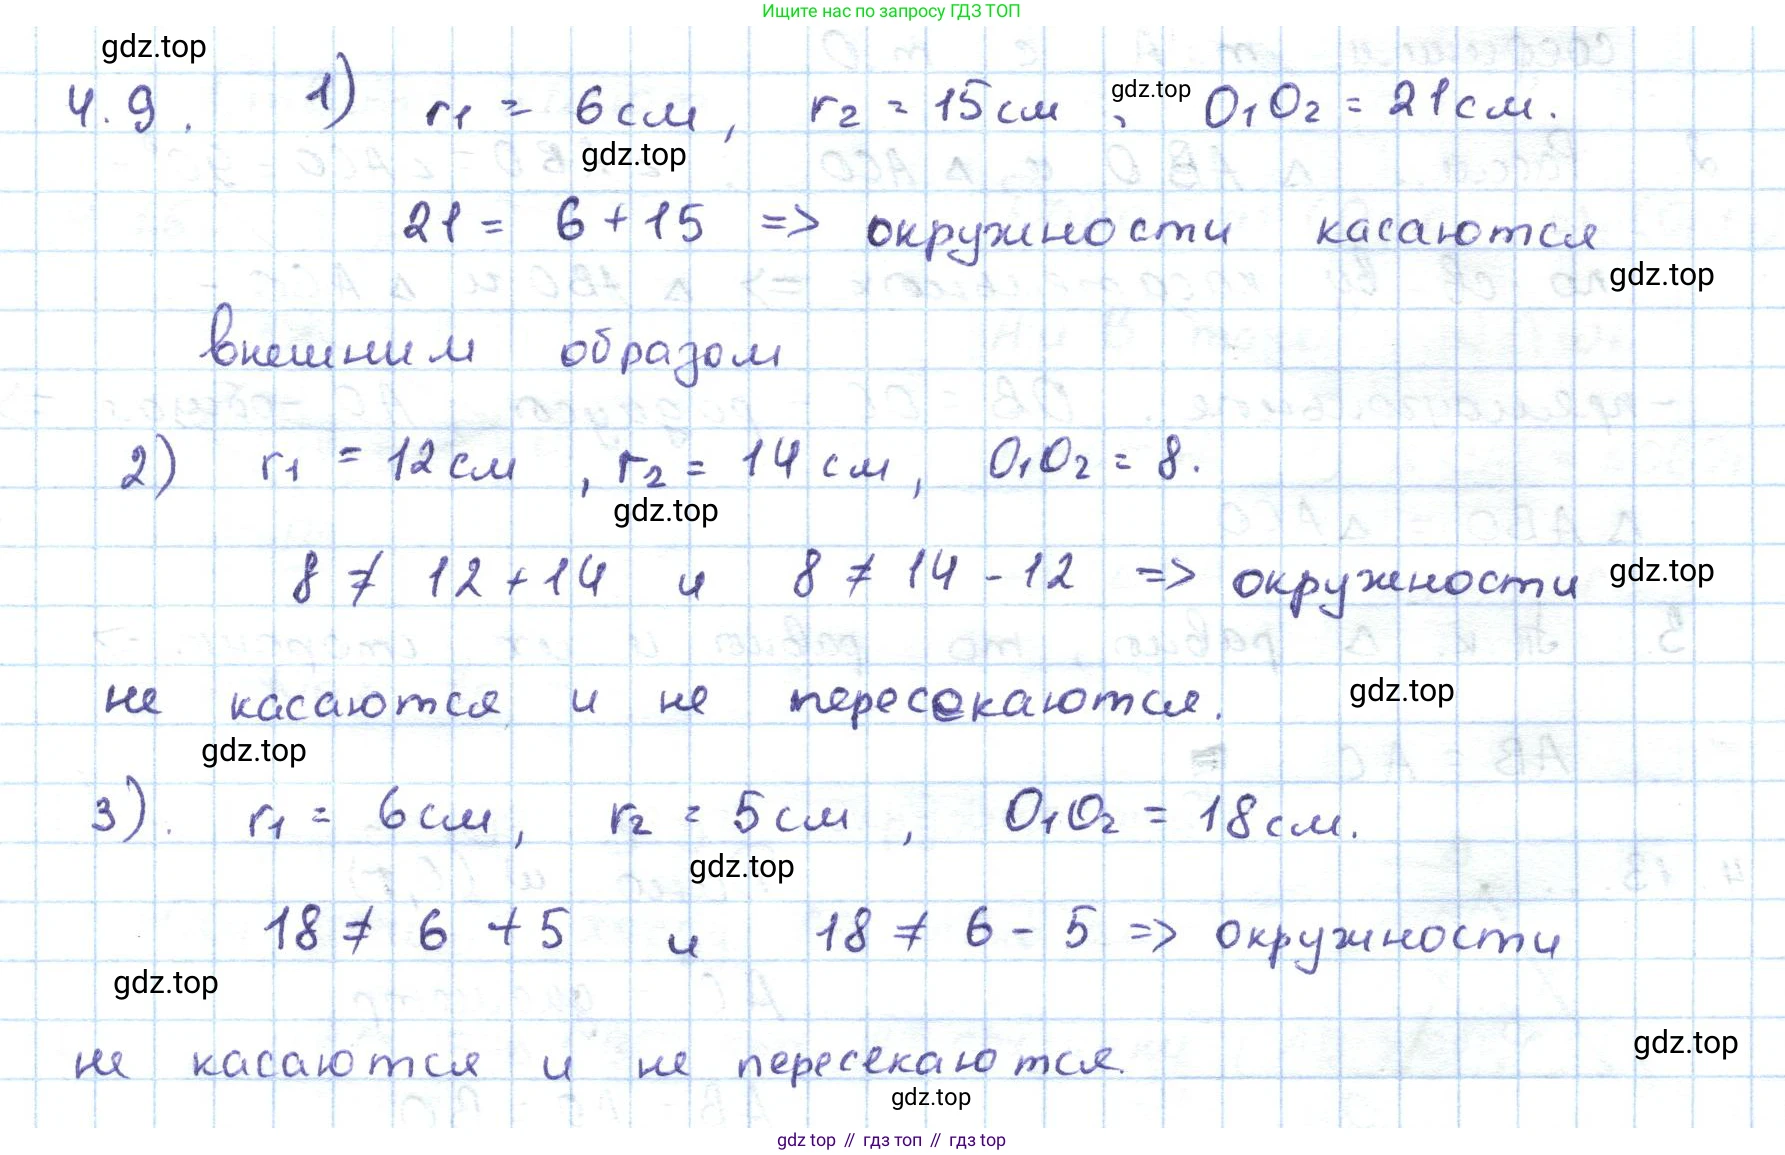 Ищите нас по запросу ГДЗ ТОП
gdz.top
4.9. 1) r₁ = 6 см, r₂ = 15 см, O₁O₂ = 21 см.
gdz.top
gdz.top
21 = 6 + 15 => окружности касаются
gdz.top
внешним образом
2) r₁ = 12 см, r₂ = 14 см, O₁O₂ = 8.
gdz.top
8 ≠ 12 + 14 и 8 ≠ 14 - 12 => окружности
gdz.top
не касаются и не пересекаются.
gdz.top
gdz.top
3). r₁ = 6 см, r₂ = 5 см, O₁O₂ = 18 см.
gdz.top
18 ≠ 6 + 5 и 18 ≠ 6 - 5 => окружности
gdz.top
gdz.top
не касаются и не пересекаются.
gdz.top
gdz top // гдз топ // гдз top